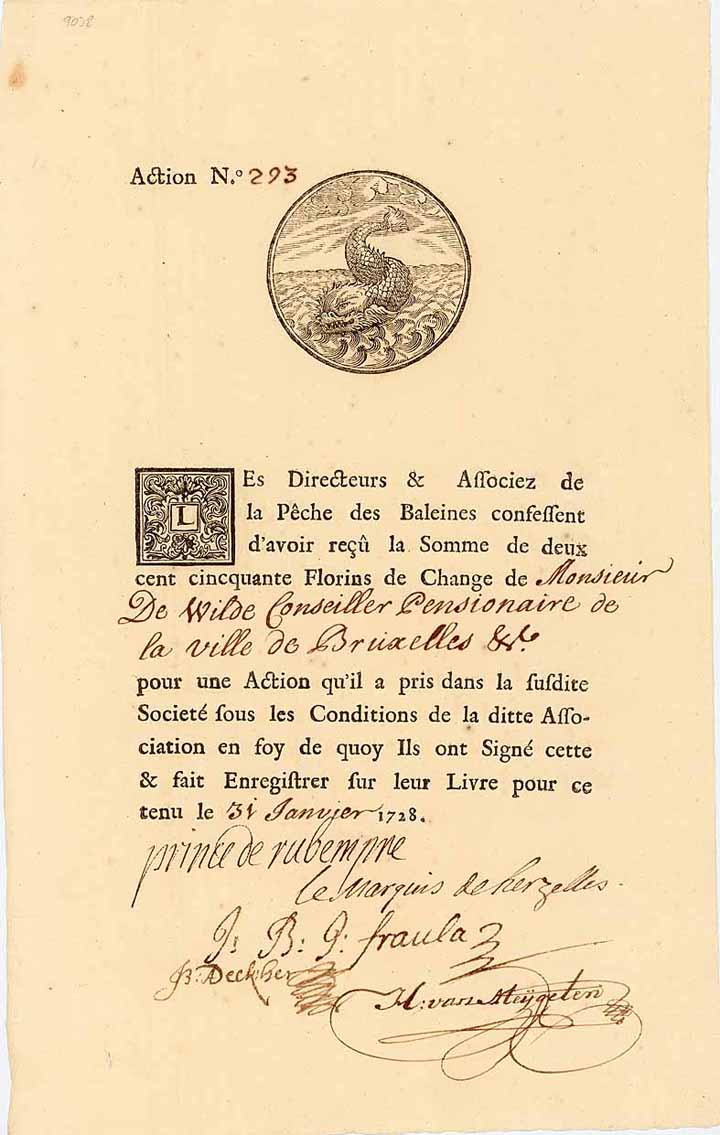 9038
Action N.º 293
LEs Directeurs & Aſſociez de
la Pêche des Baleines confeſſent
d'avoir reçû la Somme de deux
cent cincquante Florins de Change de Monsieur
De Wilde Conseiller Pensionaire de
la ville de Bruxelles &.ª
pour une Action qu'il a pris dans la ſuſdite
Societé ſous les Conditions de la ditte Aſſo-
ciation en foy de quoy Ils ont Signé cette
& fait Enregiſtrer ſur leur Livre pour ce
tenu le 31 Janvier 1728.
prince de rubempre
le Marquis de herzelles.
J: B: G: fraula
B: Deckher
H: van Meÿgeten